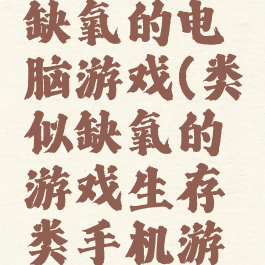 缺氧的电
脑游戏(类
似缺氧的
游戏生存
类手机游